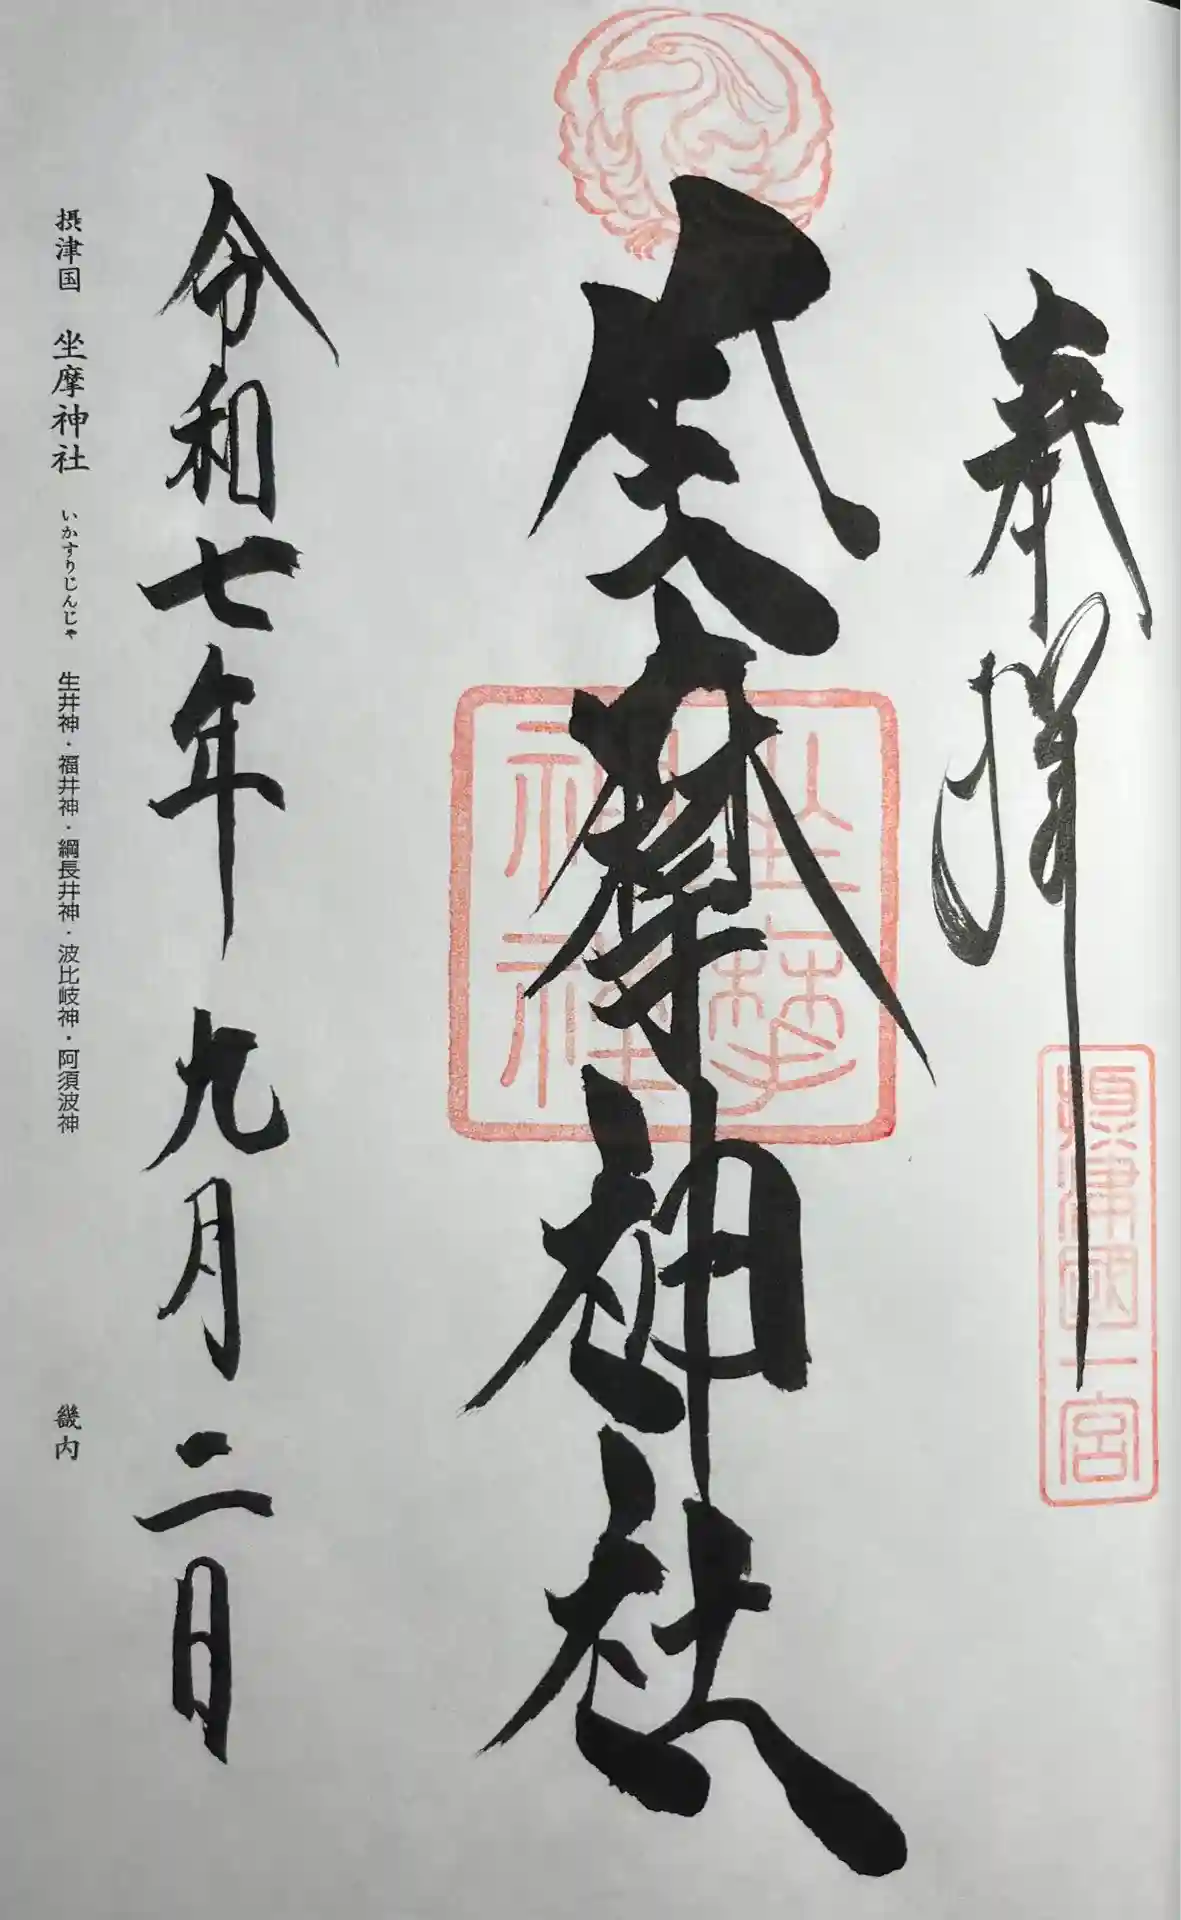 奉拝
摂津國一宮
坐摩神社
坐摩神社
令和七年 九月二日
摂津国 坐摩神社 いかすりじんじゃ 生井神・福井神・綱長井神・波比岐神・阿須波神 畿内